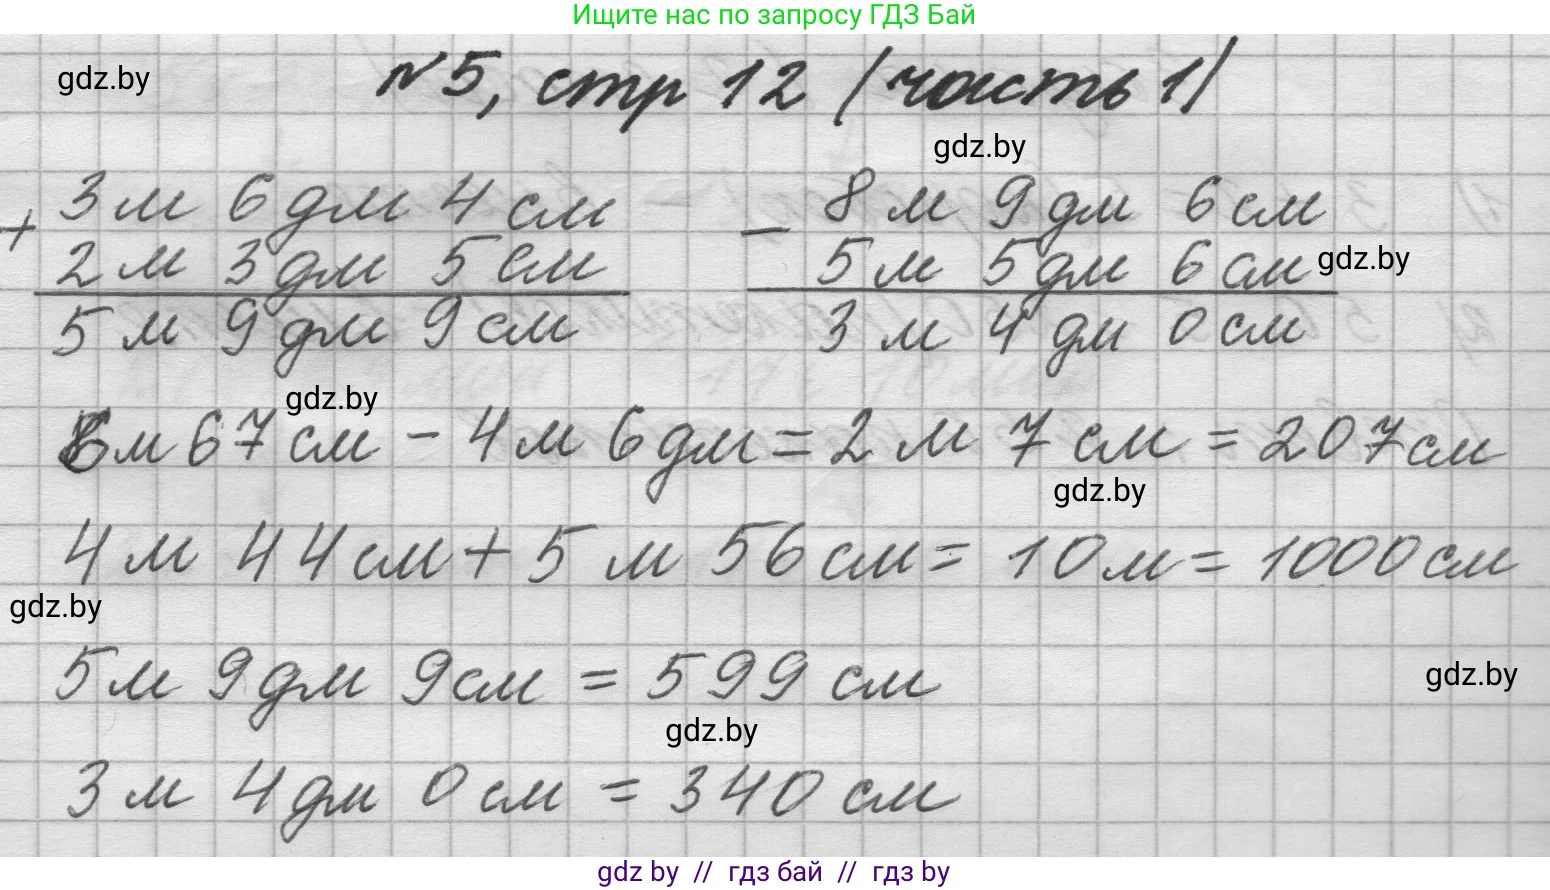 Ищите нас по запросу ГДЗ Бай
gdz.by
№5, стр 12 (часть 1)
gdz.by
+ 3 м 6 дм 4 см
2 м 3 дм 5 см
5 м 9 дм 9 см
− 8 м 9 дм 6 см
5 м 5 дм 6 см gdz.by
3 м 4 дм 0 см
gdz.by
6 м 67 см − 4 м 6 дм = 2 м 7 см = 207 см
gdz.by
4 м 44 см + 5 м 56 см = 10 м = 1000 см
gdz.by
5 м 9 дм 9 см = 599 см
gdz.by
gdz.by
3 м 4 дм 0 см = 340 см
gdz by // гдз бай // гдз by